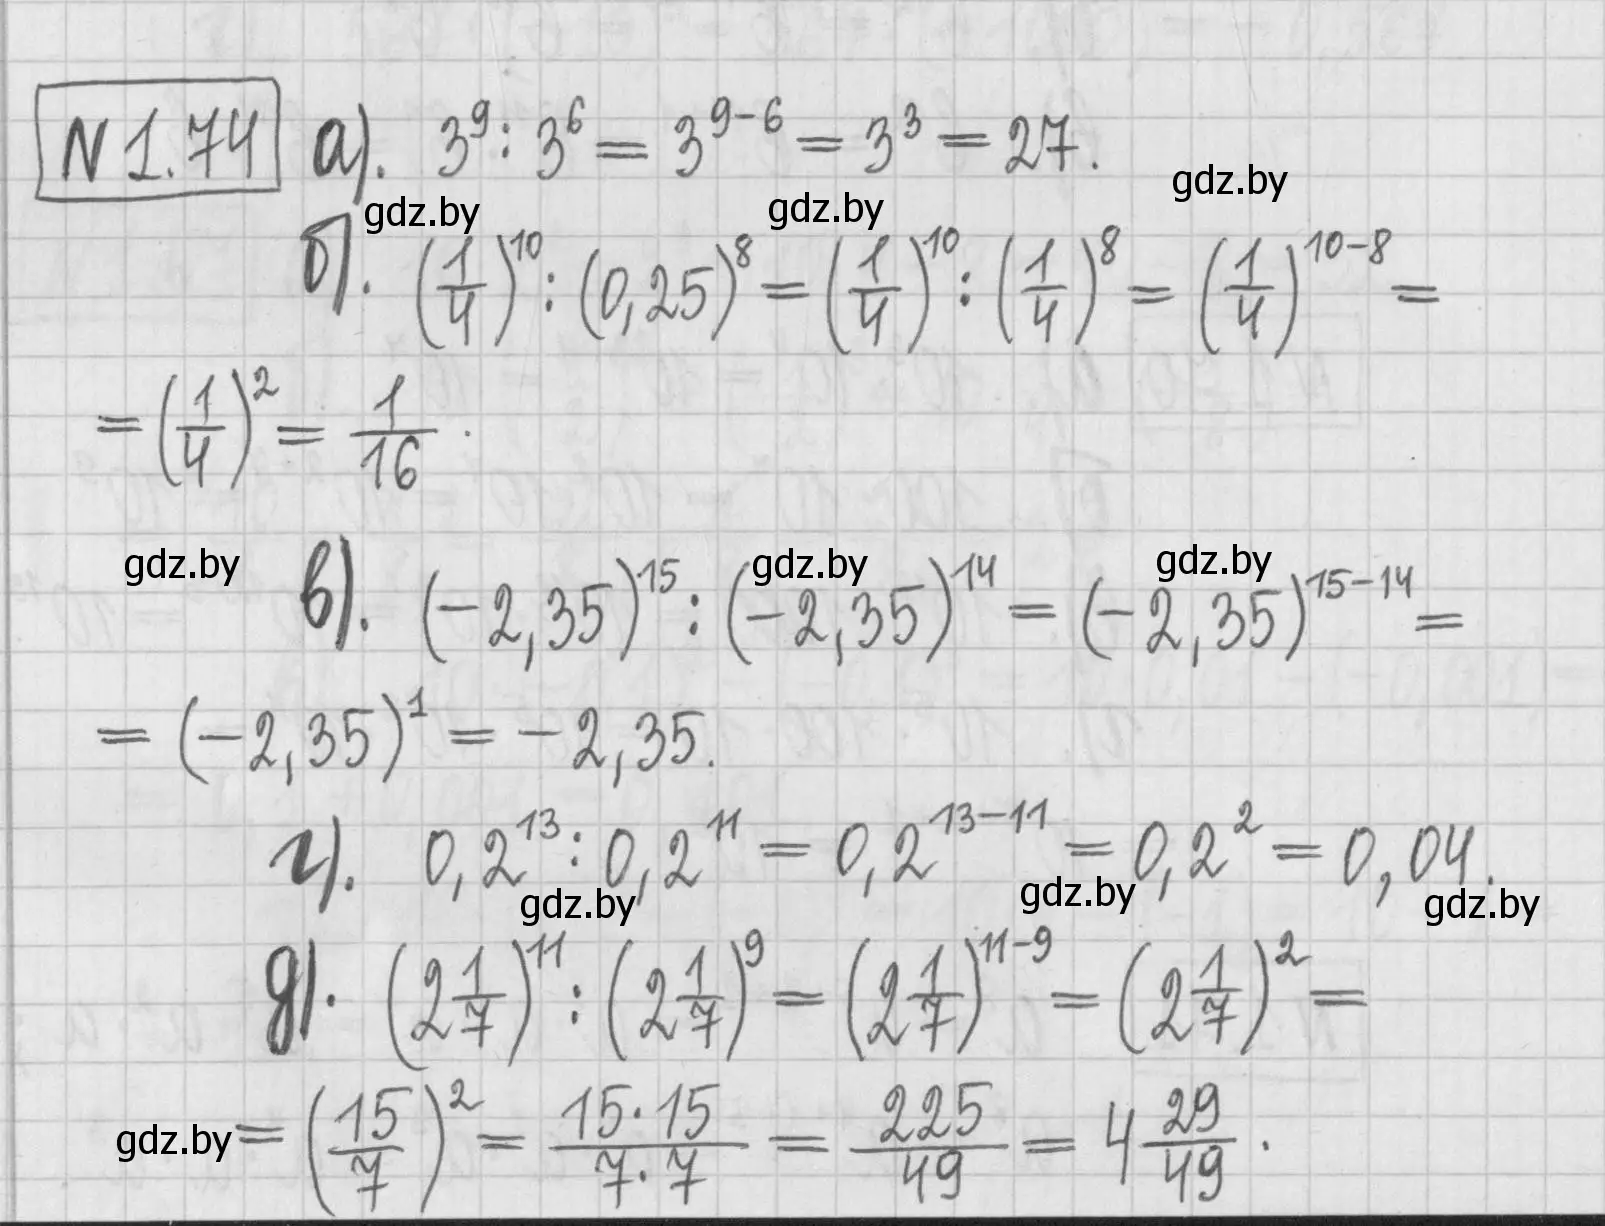 N 1.74 а). 3⁹ : 3⁶ = 3⁹⁻⁶ = 3³ = 27.
gdz.by gdz.by gdz.by
б). (1/4)¹⁰ : (0,25)⁸ = (1/4)¹⁰ : (1/4)⁸ = (1/4)¹⁰⁻⁸ =
= (1/4)² = 1/16.
gdz.by gdz.by gdz.by
в). (-2,35)¹⁵ : (-2,35)¹⁴ = (-2,35)¹⁵⁻¹⁴ =
= (-2,35)¹ = -2,35.
г). 0,2¹³ : 0,2¹¹ = 0,2¹³⁻¹¹ = 0,2² = 0,04.
gdz.by gdz.by gdz.by
д). (2 1/7)¹¹ : (2 1/7)⁹ = (2 1/7)¹¹⁻⁹ = (2 1/7)² =
gdz.by = (15/7)² = 15·15/7·7 = 225/49 = 4 29/49.